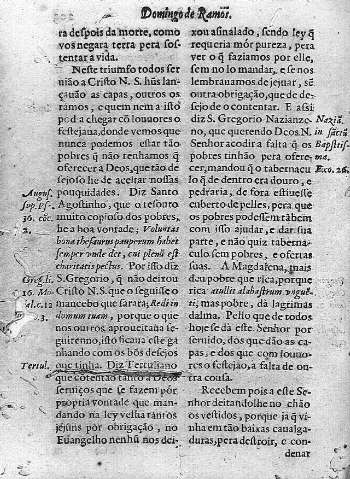 Domingo de Ramos.
ra despois da morte, como
vos negara terra pera sos-
tentar a vida.
Neste triumfo todos ser
uião a Christo N. S. hũs lan-
çauão as capas, outros os
ramos, e quem nem a isso
pod a chegar cõ louuores o
festejaua, donde vemos que
nunca podemos estar tão
pobres q̃ não tenhamos q̃
offerecer a Deos, que tão de
sejoso he de aceitar nossas
pouquidades. Diz Santo
Agostinho, que o tesouro
muito copioso dos pobres,
he a boa vontade; Voluntas
bona thesaurus pauperum habet
semper unde det, cui plenũ est
charitatis pectus. Por isso diz
S. Gregorio, q̃ não deixou
Cristo N. S. que o seguisse o
mancebo que sarara, Redi in
domum tuam, porque o que
nos outros aproueitaua se-
guirenno, isto ficaua este ga
nhando com os bõs desejos
que tinha. Diz Tertuliano
que contentão tanto a Deos
seruiços que se fazem por
propria vontade que man-
dando na ley velha tantos
jejũs por obrigação, no
Euangelho nenhũ nos dei-
August.
36. cõc.
2.
Greg. li.
Tertul.
xou asinalado, sendo ley q̃
requeria mór pureza, pera
ver o q̃ faziamos por elle,
sem no lo mandar, e se nos
lembrauamos de jejuar, sẽ
outra obrigação, que de de-
sejo de o contentar. E assi
diz S. Gregorio Nazianze-
no, que querendo Deos N.
Senhor acodir a falta q̃ os
pobres tinhão pera ofere-
cer, mandou q̃ o tabernacu
lo q̃ de dentro era douro, e
pedraria, de fora estiuesse
cuberto de pelles, pera que
os pobres podessem tãbem
com isso ajudar, e dar sua
parte, e não quiz taberna-
culo sem pobres, e ofertas
suas. A Magdalena, mais
deu pobre que rica, porque
rica attulit alabastrum ungue-
ti, mas pobre, dá lagrimas
dalma. Pesso que de todos
hoje se dá este Senhor por
seruido, dos que dão as ca-
pas, e dos que com louuo-
res o festejão, a falta de ou-
tra cousa.
Recebem pois a este Se-
nhor deitandolhe no chão
os vestidos, porque ja q̃ vi-
nha em tão baixas caualga-
duras, pera destroir, e con-
denar
Naziã.
in sãctũ
Baptis-
ma.
Exo. 26.